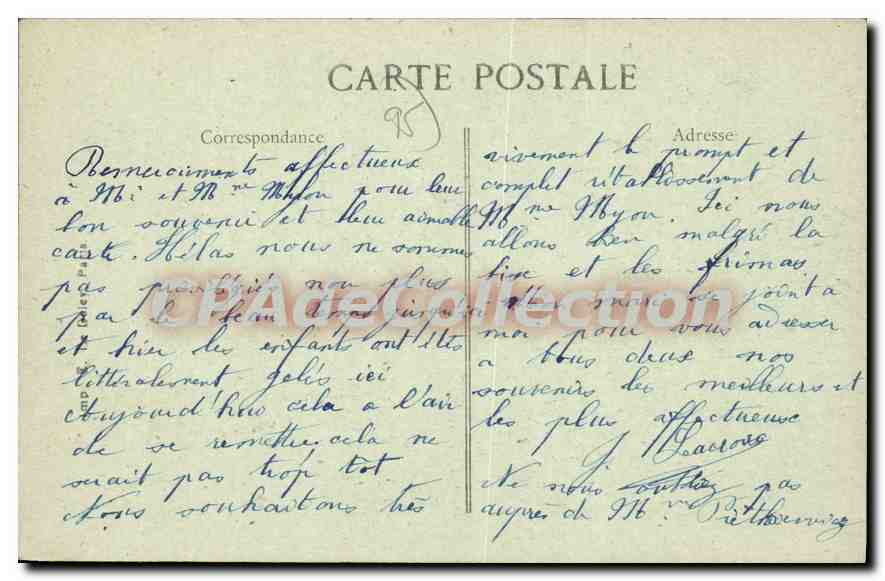 CARTE POSTALE
Correspondance
Remerciements affectueux
à Mr et Mme Myon pour leur
bon souvenir et leur aimable
carte. Hélas nous ne sommes
pas privilégiés non plus
par le beau temps jusqu'ici
et hier les enfants ont étés
littéralement gelés ici
Aujourd'hui cela a l'air
de se remettre, cela ne
serait pas trop tot
Nous souhaitons très
Adresse
vivement le prompt et
complet rétablissement de
Mme Myon. Ici nous
allons bien malgré la
bise et les frimas
se joint à
moi pour vous adresser
a tous deux nos
souvenirs les meilleurs et
les plus affectueux
J. Lacroix
Ne nous oubliez pas
auprès de Mme
CPAdeCollection